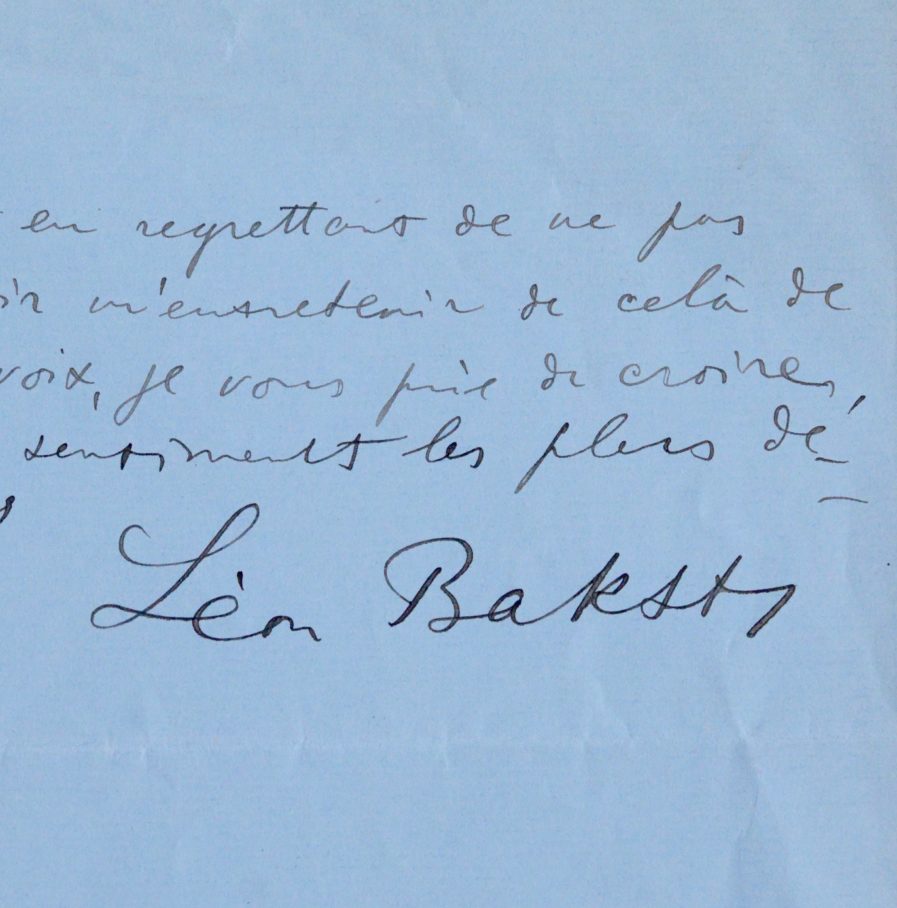 en regrettant de ne pas
ir m'entretenir de celà de
voix, je vous prie de croire,
sentiments les plus dé-
Léon Bakst